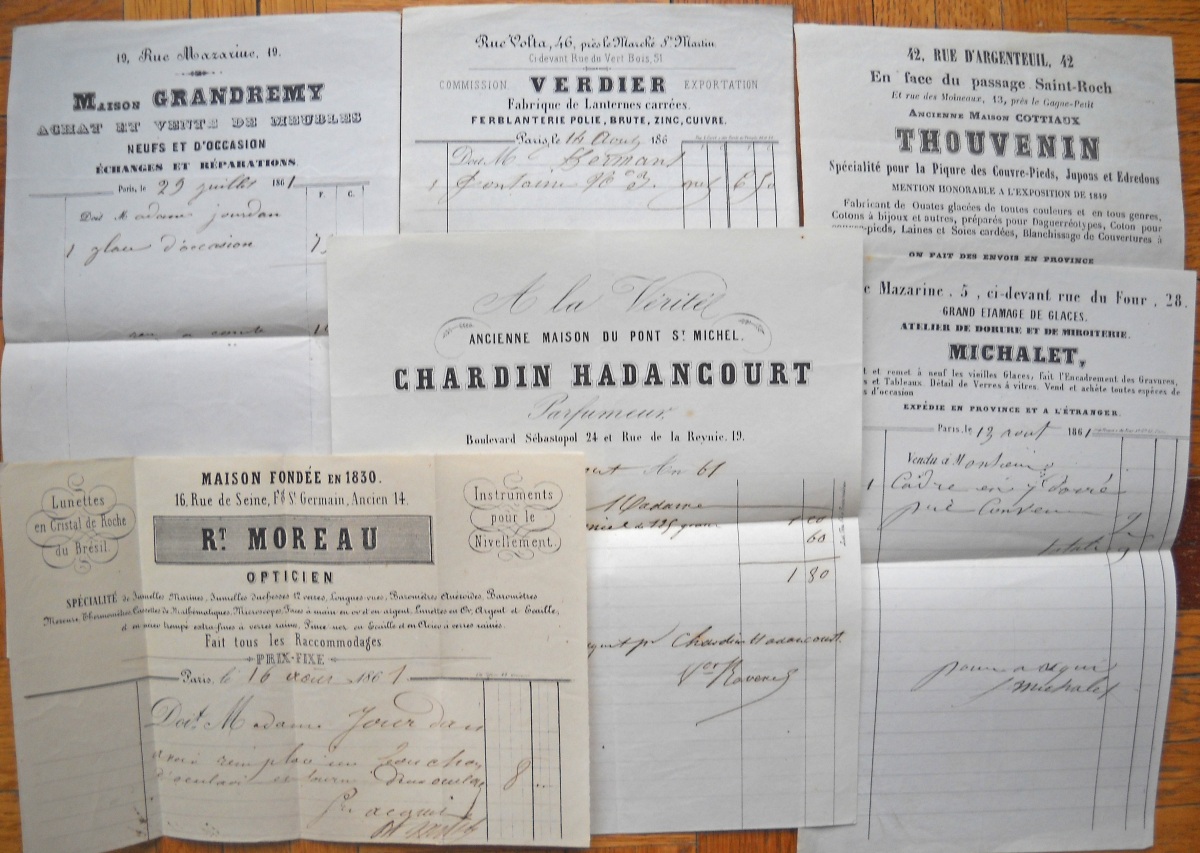 19, Rue Mazarine, 19.
MAISON GRANDREMY
ACHAT ET VENTE DE MEUBLES
NEUFS ET D'OCCASION
ÉCHANGES ET RÉPARATIONS
Paris, le 29 juillet 1861
F. C.
Doit Madame jourdan
1 glace d'occasion
Rue Volta, 46, près le Marché St. Martin
Ci-devant Rue de Vert Bois, 51
COMMISSION VERDIER EXPORTATION
Fabrique de Lanternes carrées.
FERBLANTERIE POLIE, BRUTE, ZINC, CUIVRE.
Paris, le 14 Aout 186
Doit M
1 fontaine No 3. 6 50
42, RUE D'ARGENTEUIL, 42
En face du passage Saint-Roch
Et rue des Moineaux, 13, près le Gagne-Petit
ANCIENNE MAISON COTTIAUX
THOUVENIN
Spécialité pour la Piqure des Couvre-Pieds, Jupons et Edredons
MENTION HONORABLE A L'EXPOSITION DE 1849
Fabricant de Ouates glacées de toutes couleurs et en tous genres,
Cotons à bijoux et autres, préparés pour Daguerréotypes, Coton pour
couvre-pieds, Laines et Soies cardées, Blanchissage de Couvertures à
ON FAIT DES ENVOIS EN PROVINCE
A la Vérité
ANCIENNE MAISON DU PONT ST MICHEL.
CHARDIN HADANCOURT
Parfumeur
Boulevard Sébastopol 24 et Rue de la Reynie. 19.
An 61
Madame
de 125 gram
60
1 80
Chardin Hadancourt.
e Mazarine . 5 , ci-devant rue du Four , 28.
GRAND ETAMAGE DE GLACES.
ATELIER DE DORURE ET DE MIROITERIE.
MICHALET,
t et remet à neuf les vieilles Glaces, fait l'Encadrement des Gravures,
s et Tableaux. Détail de Verres à vitres. Vend et achète toutes espèces de
s d'occasion
EXPÉDIE EN PROVINCE ET A L'ÉTRANGER.
Paris, le 13 aout 1861
Vendu à Monsieur
1 Cadre en doré
prix Convenu
9
pour acquit
Michalet
MAISON FONDÉE EN 1830.
16, Rue de Seine, Fg St Germain, Ancien 14.
Lunettes
en Cristal de Roche
du Brésil.
RT MOREAU
Instruments
pour le
Nivellement.
OPTICIEN
SPÉCIALITÉ de Jumelles Marines, Jumelles duchesses 12 verres, Longues vues, Baromètres Anéroïdes, Baromètres
Mercure, Thermomètres, Cassettes de Mathématiques, Microscopes, Faces à main en or et en argent, Lunettes en Or, Argent et Ecaille,
et en acier trempé extra-fines à verres rainés. Pince-nez en Ecaille et en Acier à verres rainés.
Fait tous les Raccommodages
PRIX-FIXE
Paris, le 16 aout 1861
Doit Madame Jourdan
avoir remplacé un
8
Pr acquit